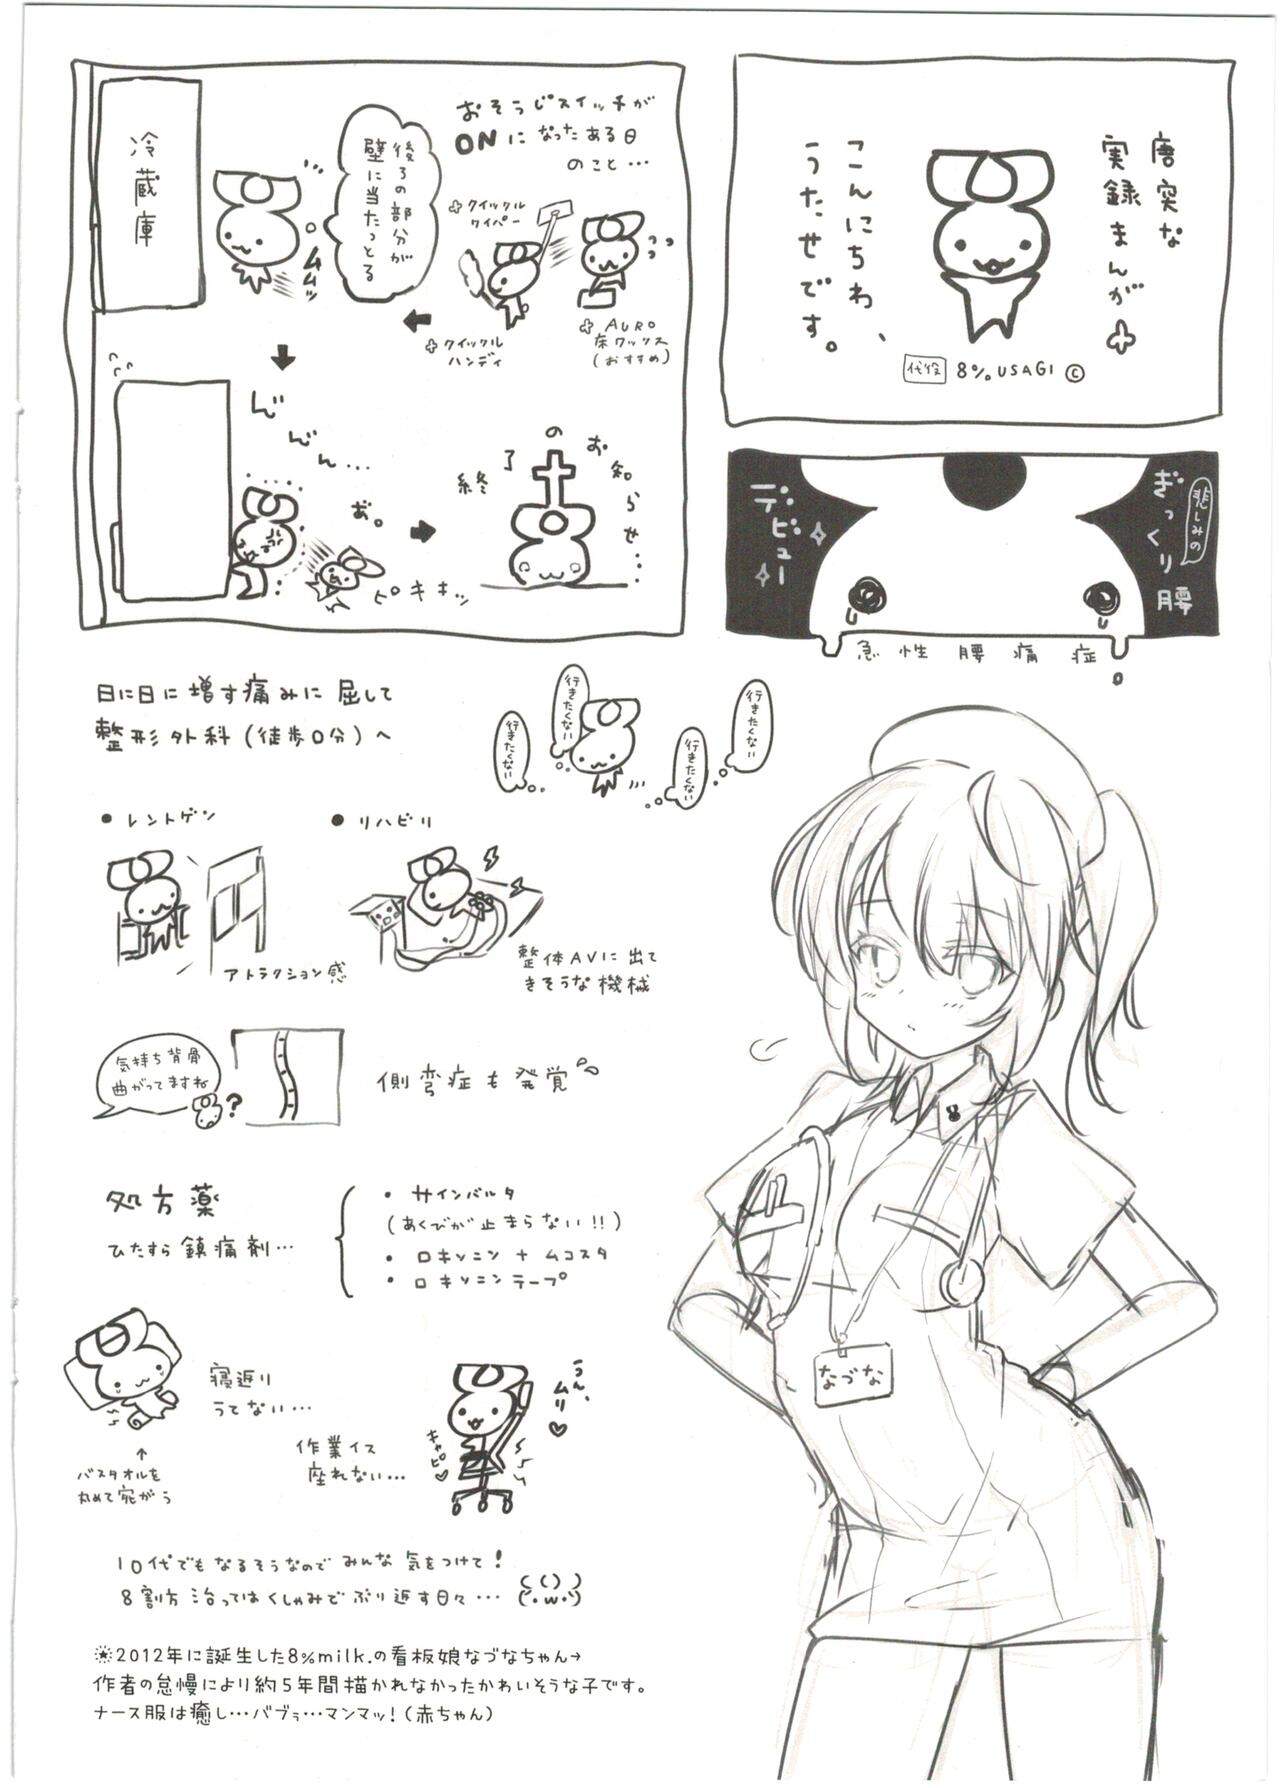 唐突な
実録まんが
こんにちわ、
うたせです。
代役 8% USAGI ©
悲しみの
ぎっくり腰
デビュー
急性腰痛症
おそうじスイッチが
ONになったある日
のこと…
クイックル
ワイパー
クイックル
ハンディ
AURO
床ワックス
(おすすめ)
後ろの部分が
壁に当たっとる
ムムッ
冷蔵庫
ピキキッ
終了のお知らせ…
日に日に増す痛みに屈して
整形外科(徒歩0分)へ
行きたくない
行きたくない
行きたくない
行きたくない
●レントゲン
アトラクション感
●リハビリ
整体AVに出て
きそうな機械
気持ち背骨
曲がってますね
?
側弯症も発覚
処方薬
ひたすら鎮痛剤…
・サインバルタ
(あくびが止まらない!!)
・ロキソニン+ムコスタ
・ロキソニンテープ
寝返り
うてない…
↑
バスタオルを
丸めて宛がう
作業イス
座れない…
キャピ♡
うん、
ムリ♡
10代でもなるそうなのでみんな気をつけて!
8割方治ってはくしゃみでぶり返す日々…
(´・ω・`)
なづな
※2012年に誕生した8%milk.の看板娘なづなちゃん→
作者の怠慢により約5年間描かれなかったかわいそうな子です。
ナース服は癒し…バブゥ…マンマッ!(赤ちゃん)